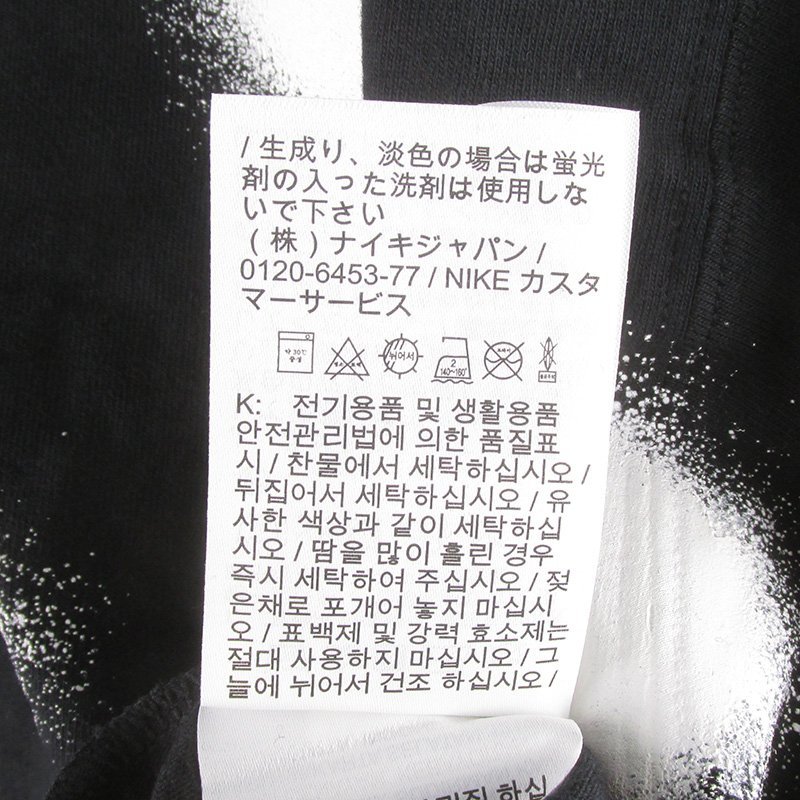 / 生成り、淡色の場合は蛍光
剤の入った洗剤は使用しな
いで下さい
(株)ナイキジャパン /
0120-6453-77 / NIKE カスタ
マーサービス
약 30℃
중성
뉘어서
2
140~160℃
드라이
K: 전기용품 및 생활용품
안전관리법에 의한 품질표
시 / 찬물에서 세탁하십시오 /
뒤집어서 세탁하십시오 / 유
사한 색상과 같이 세탁하십
시오 / 땀을 많이 흘린 경우
즉시 세탁하여 주십시오 / 젖
은채로 포개어 놓지 마십시
오 / 표백제 및 강력 효소제는
절대 사용하지 마십시오 / 그
늘에 뉘어서 건조 하십시오 /
하십